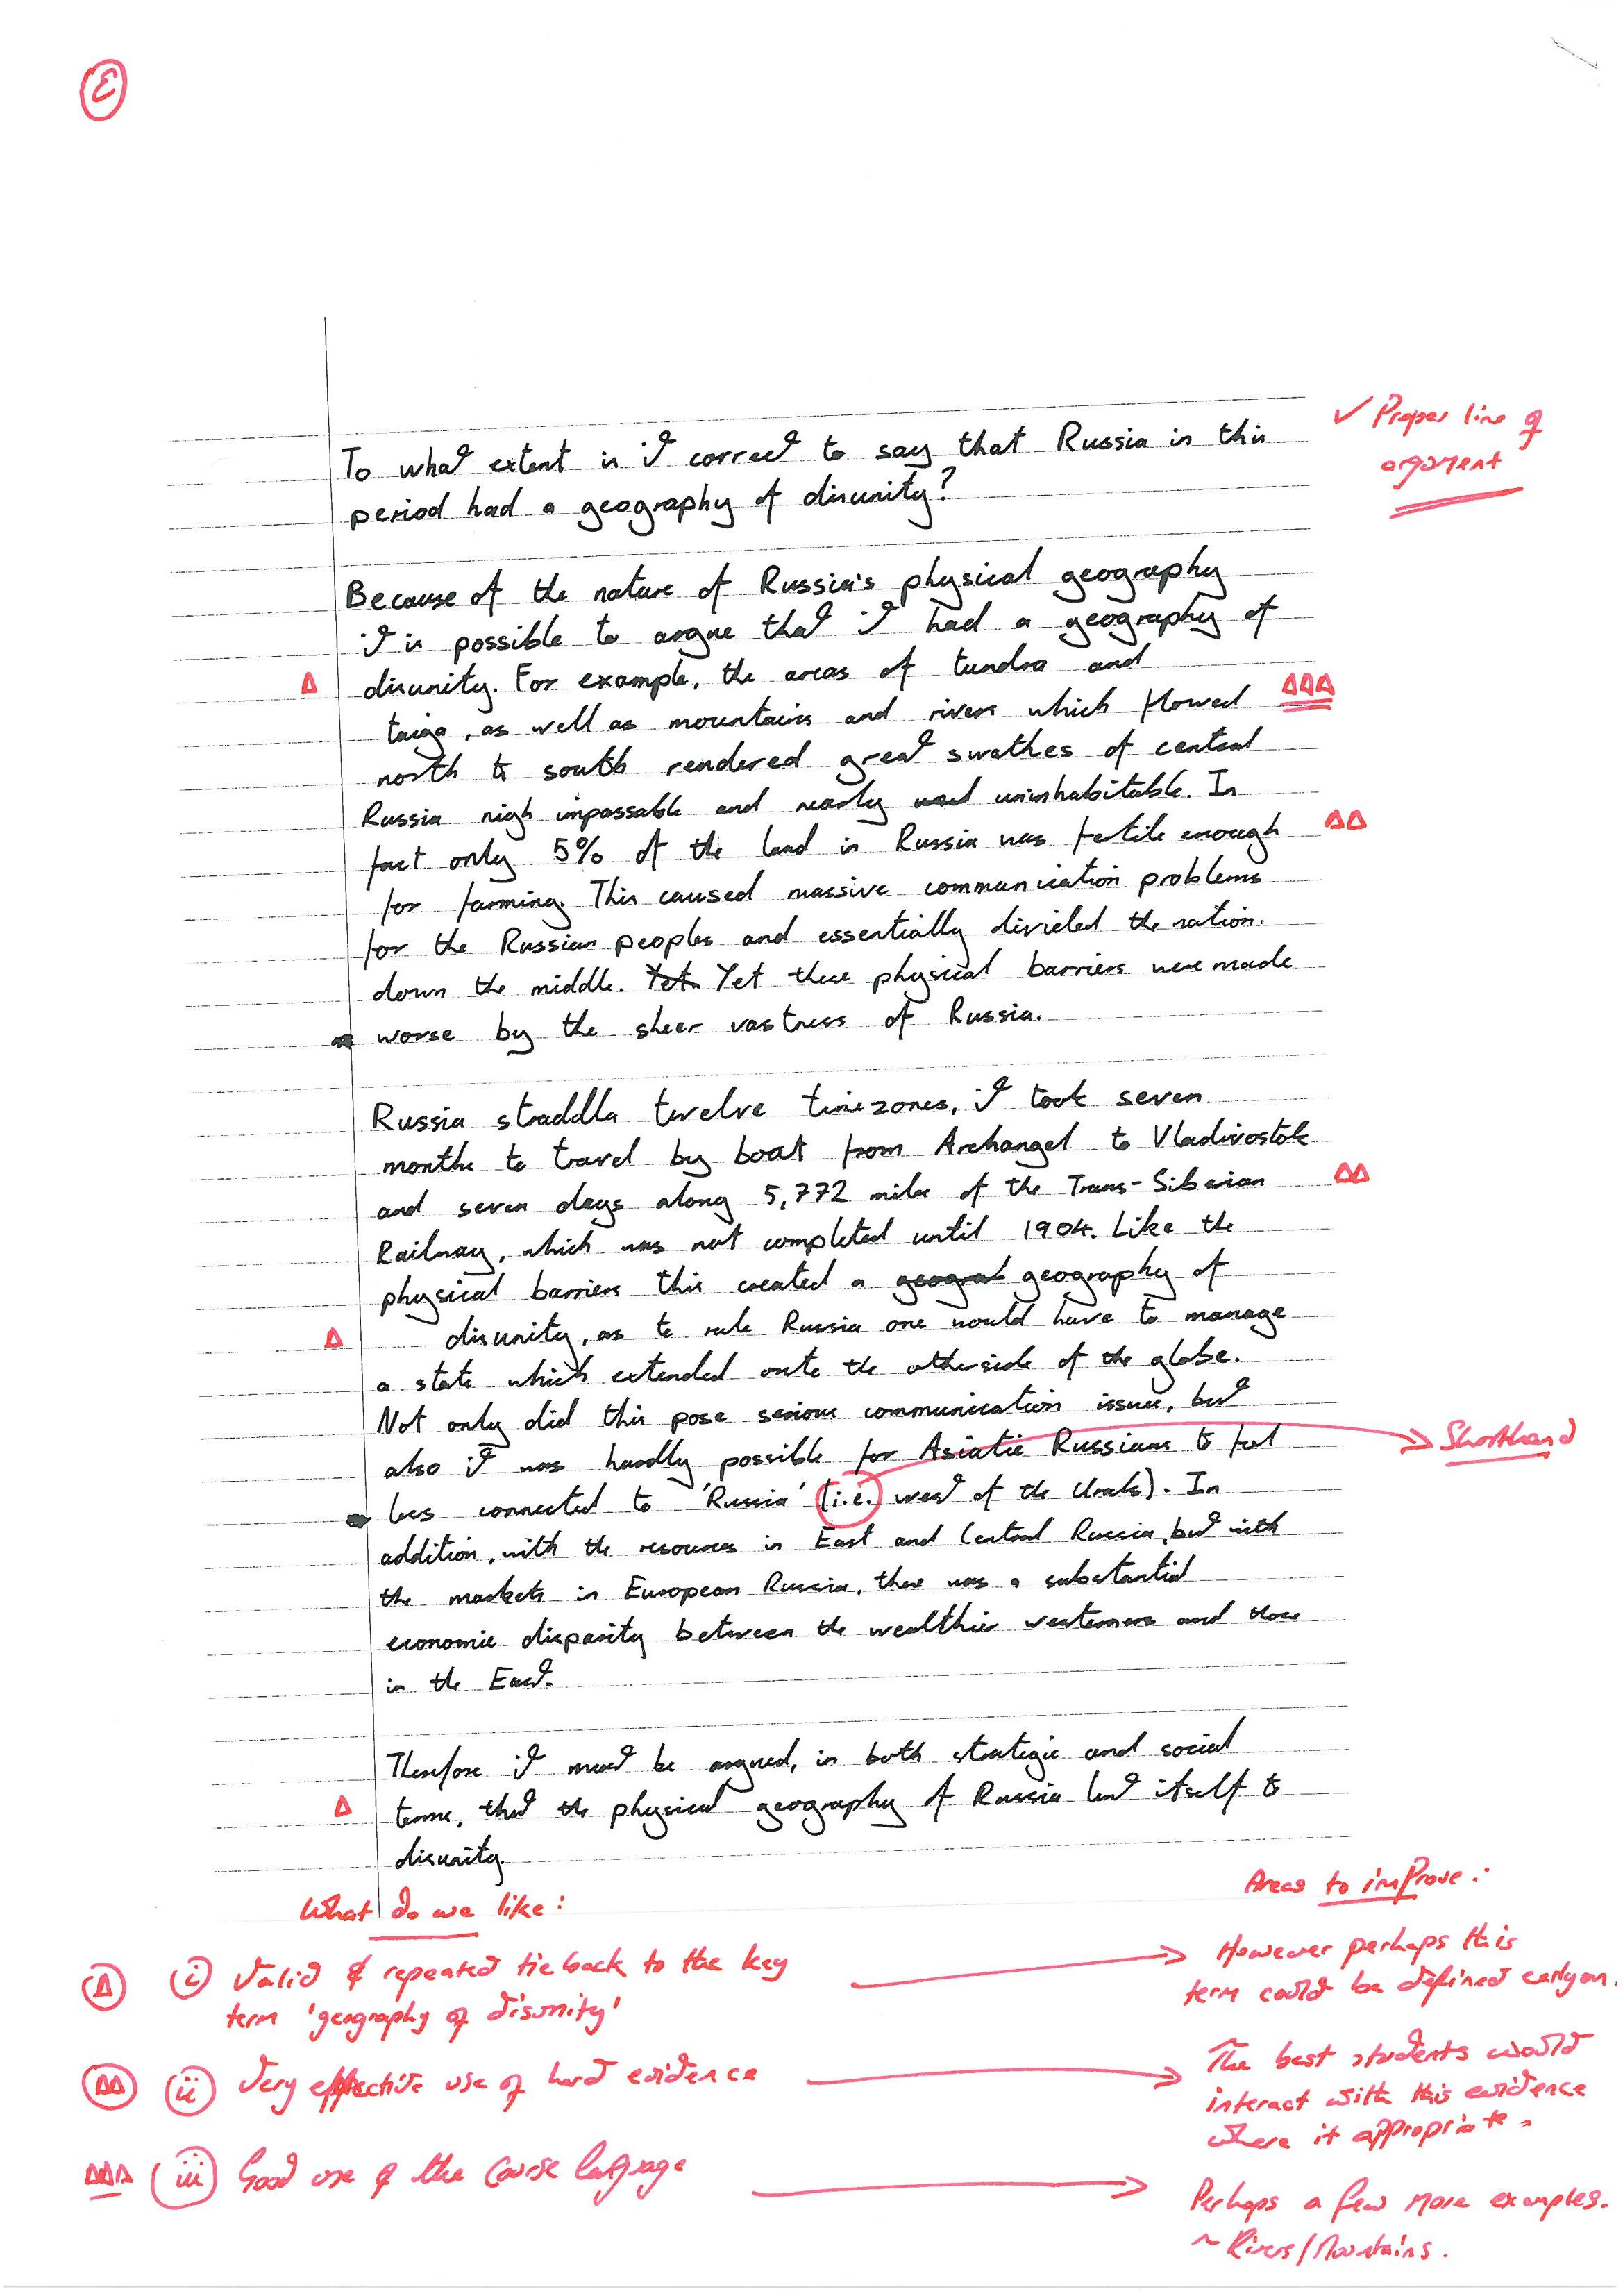 E
To what extent is it correct to say that Russia in this
period had a geography of disunity?
✓ Proper line of
argument
Because of the nature of Russia's physical geography
it is possible to argue that it had a geography of
disunity. For example, the areas of tundra and
taiga, as well as mountains and rivers which flowed
north to south rendered great swathes of central
Russia nigh impassable and nearly uninhabitable. In
fact only 5% of the land in Russia was fertile enough
for farming. This caused massive communication problems
for the Russian peoples and essentially divided the nation.
down the middle. Yet Yet these physical barriers were made
worse by the sheer vastness of Russia.
Russia straddles twelve timezones, it took seven
months to travel by boat from Archangel to Vladivostok
and seven days along 5,772 miles of the Trans-Siberian
Railway, which was not completed until 1904. Like the
physical barriers this created a geograf geography of
disunity, as to rule Russia one would have to manage
a state which extended onto the otherside of the globe.
Not only did this pose serious communication issues, but
also it was hardly possible for Asiatic Russians to feel
less connected to 'Russia' (i.e. west of the Urals). In
Shorthand
addition, with the resources in East and Central Russia, but with
the markets in European Russia, there was a substantial
economic disparity between the wealthier westerners and those
in the East.
Therefore it must be argued, in both strategic and social
terms, that the physical geography of Russia lent itself to
disunity.
What do we like:
(i) Valid & repeated tie back to the key
term 'geography of disunity'
(ii) Very effective use of hard evidence
(iii) Good use of the course language
Areas to improve:
However perhaps this
term could be defined early on.
The best students would
interact with this evidence
where it appropriate.
Perhaps a few more examples.
~ Rivers/Mountains.